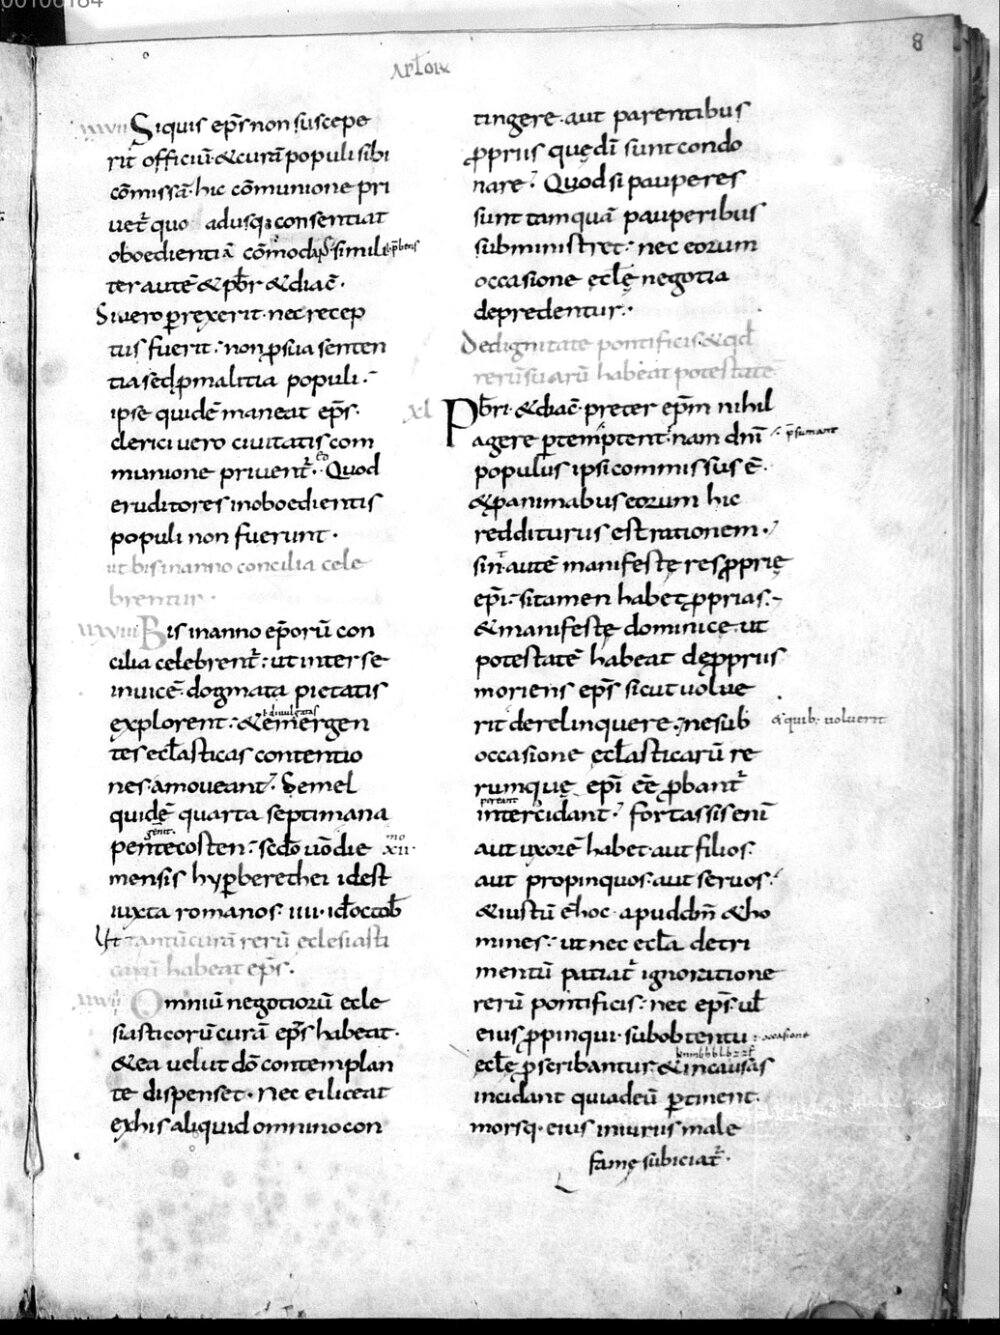 00106184
8
Siquis ep̄s non suscepe
rit officiū &curā populi sibi
cōmissā· hic cōmunione pri
uet̄ quo adusq; consentiat
oboedientiā cōmodans· simili
ter autē & pb̄r & diac̄·
Si uero p̱rexerit· nec recep
tus fuerit· non p̱ sua senten
tia sed p̱ malitia populi·
ipse quidē maneat ep̄s·
clerici uero ciuitatis com
munione priuent̄· Quod
eo
eruditores inoboedientis
populi non fuerunt·
ut bis in anno concilia cele
brentur·
xxxviii Bis in anno ep̄orū con
cilia celebrent̄· ut inter se
inuicē dogmata pietatis
explorent· & emergen
tes ecl̄asticas contentio
nes amoueant̄· Semel
quidē quarta septimana
pentecosten· sed̄o uō die xii·
mensis hyp̱berethei idest
iuxta romanos· iiii· id̄ octob̄
Ut tantū curā rerū eclesiasti
carū habeat ep̄s·
Omniū negotiorū ecle
siasticorū curā ep̄s habeat·
& ea uelut dō contemplan
te dispenset· Nec ei liceat
ex his aliquid omnino con
tingere· aut parentibus
p̱propriis quę dī sunt condo
nare· Quod si pauperes
sunt tamquā pauperibus
subministret· nec eorum
occasione ecl̄ę negotia
depredentur·
De dignitate pontificis & qd̄
rerū suarū habeat potestatē
xl Pb̄ri· & diac̄ preter ep̄m nihil
agere p̱temptent· nam dn̄i p̄sumant
populus ipsi commissus ē·
& p̱ animabus eorum hic
redditurus est rationem·
sint̄ autē manifestę res p̱prię
ep̄i· si tamen habet p̱prias·
& manifestę dominicę· ut
potestatē habeat dę p̱priis
moriens ep̄s sicut uolue
rit derelinquere· ne sub & quib; uoluerit
occasione ecl̄asticarū re
rum quę ep̄i eē p̱bant̄
pereant
intercidant· fortassis enī
aut uxorē habet aut filios·
aut propinquos· aut seruos·
& iustū ē hoc· apud dm̄ & ho
mines· ut nec ecl̄a detri
mentū patiat̄ ignoratione
rerū pontificis· nec ep̄s ul̄
eius p̱pinqui· sub obtentu occasione
ecl̄ę p̱scribantur· & in causas
incidant qui ad eū p̱tinent·
morsq· eius iniuriis male
famę subiciat̄·